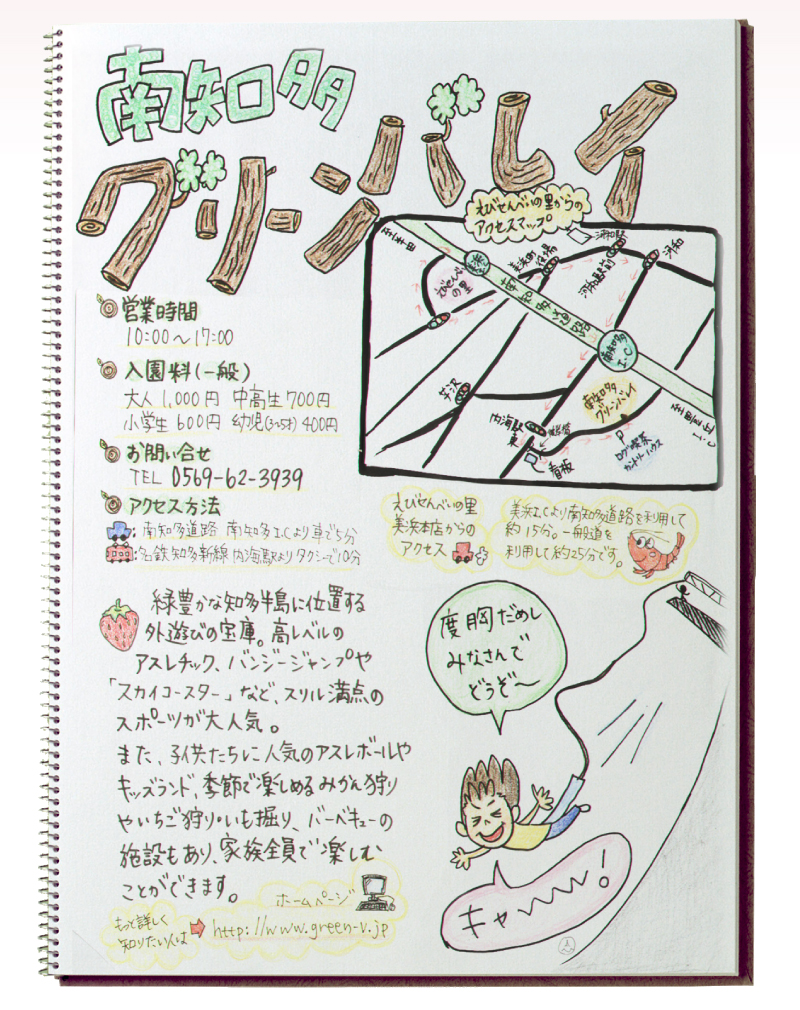 南知多
グリーンバレイ
えびせんべいの里からの
アクセスマップ
営業時間
10:00～17:00
入園料(一般)
大人 1,000円 中高生 700円
小学生 600円 幼児(3~5才) 400円
お問い合せ
TEL 0569-62-3939
アクセス方法
:南知多道路 南知多I.Cより車で5分
:名鉄知多新線 内海駅よりタクシーで10分
えびせんべい
の里
美浜町
役場
河和駅
河和駅前
河和
南知多道路
南知多
I.C
南知多
グリーンバレイ
内海駅
東
看板
P
ログ喫茶
カントリーハウス
えびせんべいの里
美浜本店からの
アクセス
美浜I.Cより南知多道路を利用して
約15分。一般道を
利用して約25分です。
緑豊かな知多半島に位置する
外遊びの宝庫。高レベルの
アスレチック、バンジージャンプや
「スカイコースター」など、スリル満点の
スポーツが大人気。
また、子供たちに人気のアスレボールや
キッズランド、季節で楽しめるみかん狩り
やいちご狩り・いも掘り、バーベキューの
施設もあり、家族全員で楽しむ
ことができます。
度胸だめし
みなさんで
どうぞ～
キャ～～～!
ホームページ
もっと詳しく
知りたい人は
http://www.green-v.jp